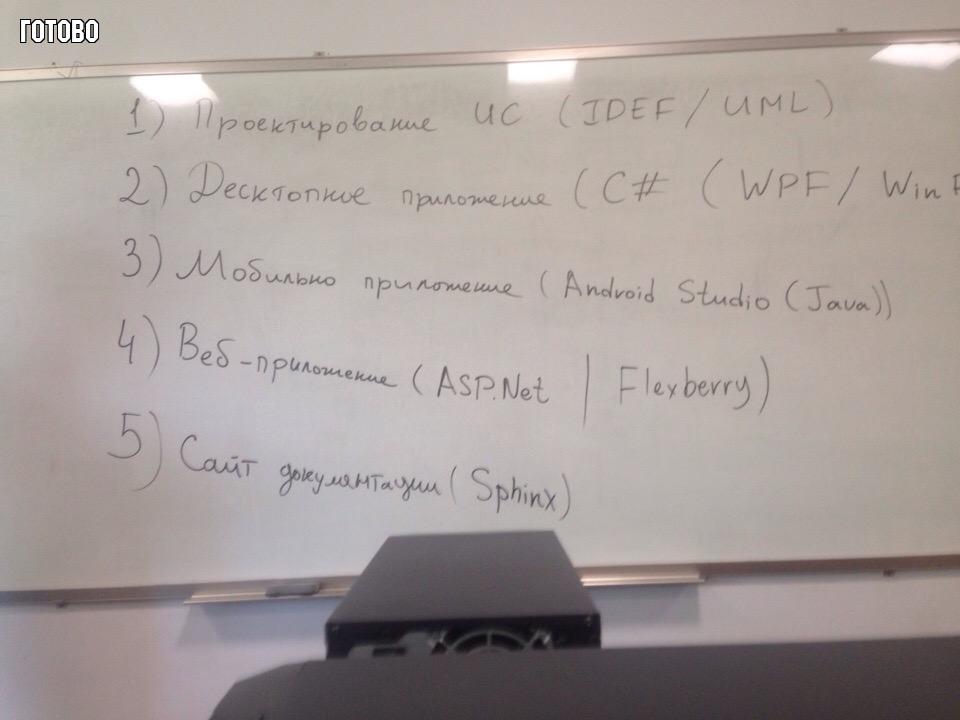 ГОТОВО
1) Проектирование ИС (IDEF / UML)
2) Десктопное приложение (C# ( WPF / Win F
3) Мобильно приложение (Android Studio (Java))
4) Веб-приложение (ASP.Net | Flexberry)
5) Сайт документации (Sphinx)